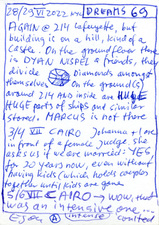 28/29 VI 2022 DREAMS 69
PGMRA @ 214 Lafayette, but
building it on a hill, kind of a
castle. On the ground floor there
is DYAN NISPEL & friends, they
divide Diamonds among
themselves On the ground(s)
around 214 AND inside are HUGE
HUGE parts of ships and similar
stored. MARCUS is not there
3/4 VII CAIRO Johanna + I are
in front of a female judge, she
asks us if we are married: YES,
for 20 years now, even without
having kids (which holds couples
together until kids are gone
5/6 VII CAIRO → WOW, that
was an intensive one...